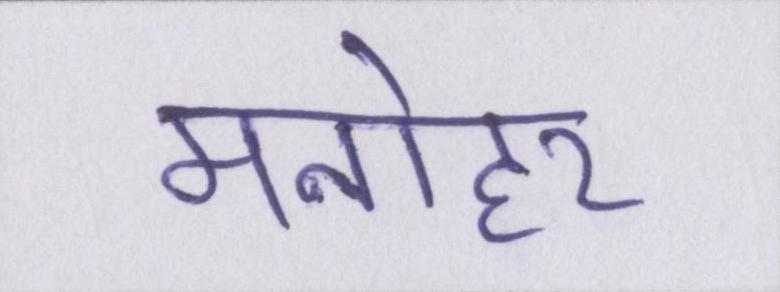 मनोहर